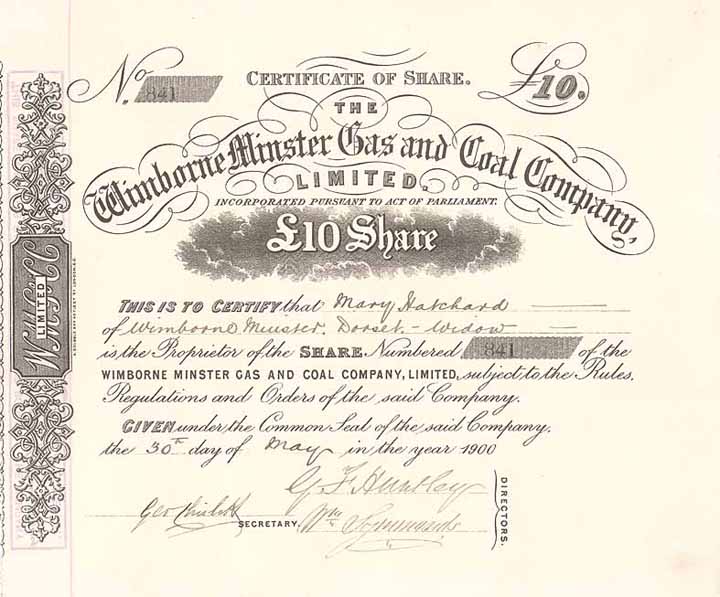 No. 841
CERTIFICATE OF SHARE.
£10.
THE
Wimborne Minster Gas and Coal Company,
LIMITED.
INCORPORATED PURSUANT TO ACT OF PARLIAMENT.
£10 Share
THIS IS TO CERTIFY that Mary Hatchard
of Wimborne Minster. Dorset - Widow
is the Proprietor of the SHARE Numbered 841 of the
WIMBORNE MINSTER GAS AND COAL COMPANY, LIMITED, subject to the Rules,
Regulations and Orders of the said Company.
GIVEN under the Common Seal of the said Company,
the 30th day of May in the year 1900
G F Huntley
Geo
SECRETARY.
Wm Symmonds
DIRECTORS.
LIMITED